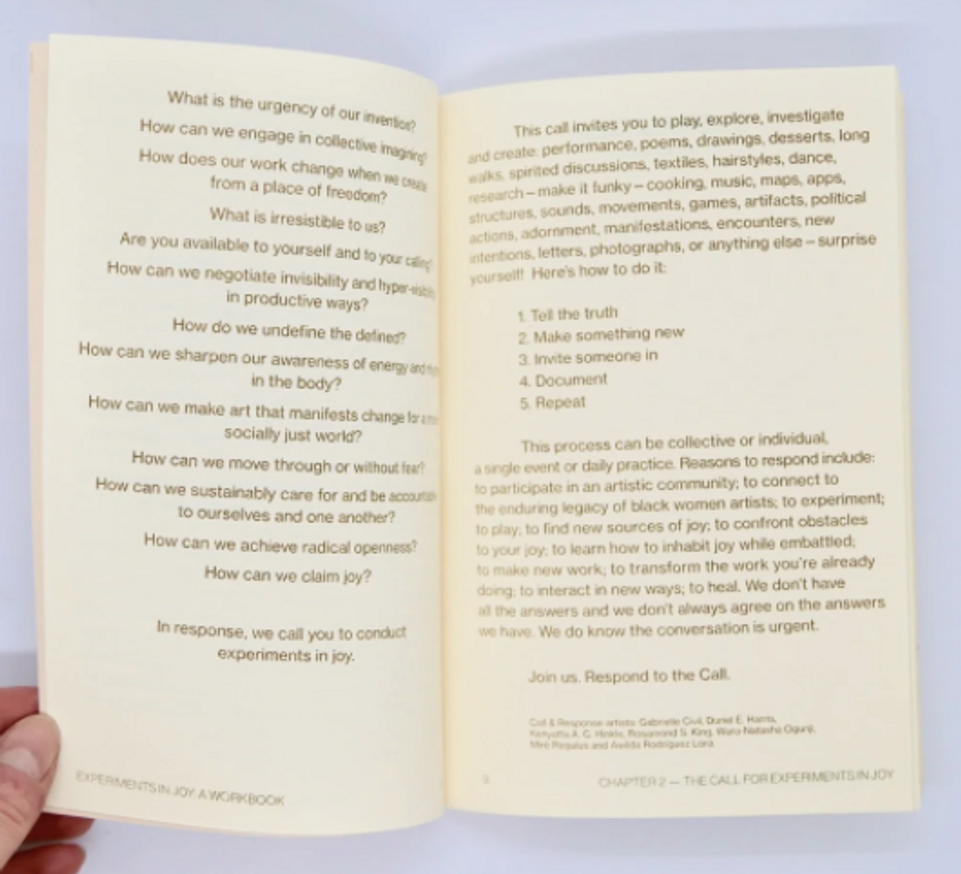 What is the urgency of our invention?
How can we engage in collective imagining?
How does our work change when we create
from a place of freedom?
What is irresistible to us?
Are you available to yourself and to your calling?
How can we negotiate invisibility and hyper-visibility
in productive ways?
How do we undefine the defined?
How can we sharpen our awareness of energy and
in the body?
How can we make art that manifests change for a
socially just world?
How can we move through or without fear?
How can we sustainably care for and be accountable
to ourselves and one another?
How can we achieve radical openness?
How can we claim joy?
In response, we call you to conduct
experiments in joy.
EXPERIMENTS IN JOY: A WORKBOOK
This call invites you to play, explore, investigate
and create: performance, poems, drawings, desserts, long
walks, spirited discussions, textiles, hairstyles, dance,
research – make it funky – cooking, music, maps, apps,
structures, sounds, movements, games, artifacts, political
actions, adornment, manifestations, encounters, new
intentions, letters, photographs, or anything else – surprise
yourself! Here's how to do it:
1. Tell the truth
2. Make something new
3. Invite someone in
4. Document
5. Repeat
This process can be collective or individual,
a single event or daily practice. Reasons to respond include:
to participate in an artistic community; to connect to
the enduring legacy of black women artists; to experiment;
to play; to find new sources of joy; to confront obstacles
to your joy; to learn how to inhabit joy while embattled;
to make new work; to transform the work you're already
doing; to interact in new ways; to heal. We don't have
all the answers and we don't always agree on the answers
we have. We do know the conversation is urgent.
Join us. Respond to the Call.
Call & Response artists: Gabrielle Civil, Duriel E. Harris,
Kenyatta A. C. Hinkle, Rosamond S. King, Wura-Natasha Ogunji,
Miré Regulus and Awilda Rodríguez Lora.
9
CHAPTER 2 — THE CALL FOR EXPERIMENTS IN JOY